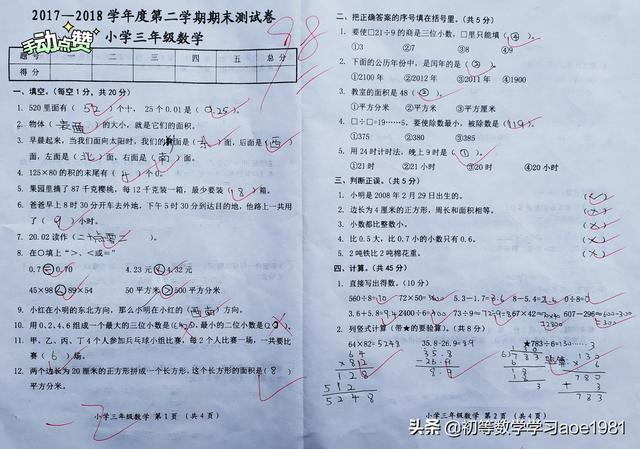 2017—2018学年度第二学期期末测试卷
小学三年级数学
手动点赞
98
题号 一 二 三 四 五 总分
得分
一、填空。(每空1分，共20分)
1. 520里面有(52)个十，25个0.01是(0.25)。
2. 物体(表面)的大小，就是它们的面积。
3. 早晨起来，当我们面向太阳时，我们的前面是(东)面，后面是(西)
面，左面是(北)面，右面是(南)面。
4. 125×80的积的末尾有(4)个0。
5. 果园里摘了87千克樱桃，每12千克装一箱，最少要装(8)箱。
6. 爸爸早上8时30分开车去外地，下午5时30分到达目的地，他路上一共用
了(9)小时。
7. 20.02读作(二十点零二)。
8. 在○填上">、<或="
0.7=0.70 4.23元<4.32元
45×98<89×54 50平方米>500平方分米
9. 小红在小明的东北方向，那么小明在小红的(西南)方向。
10. 用0、2、4、6组成一个最大的三位小数是( )，最小的二位小数是( )。
11. 甲、乙、丙、丁4个人参加乒乓球小组比赛，每2个人比赛一场，一共要比
赛(6)场。
12. 两个边长为20厘米的正方形拼成一个长方形，这个长方形的面积是(8)
平方分米。
-2
小学三年级数学 第1页 (共4页)
二、把正确答案的序号填在括号里。(共5分)
1. 要使□21÷9的商是三位小数，□里只能填(④)。
①3 ②7 ③8 ④9
2. 下面的公历年份中，是闰年的是(②)。
①2100年 ②2012年 ③2011年 ④1900
3. 教室的面积是48(②)。
①平方分米 ②平方米 ③平方厘米
4. □÷□=19……5，要使除数最小，被除数是(119)。
①375 ②380 ③385
5. 用24时计时法，晚上9时是(①)。
①21时 ②21小时 ③20时 ④20小时
三、判断正误。(共5分)
1. 小明是2008年2月29日出生的。(✓)
2. 边长为4厘米的正方形，周长和面积相等。(×)
3. 小数都比整数小。(×)
4. 比0.5大，比0.7小的小数只有0.6。(×)
5. 2吨铁比2吨棉花重。(×)
四、计算。(共45分)
1. 直接写出得数。(10分)
560÷8=70 72×50=3600 5.3-1.7=3.6 8-5.4=2.6 0÷8=0
3.6+5.8=9.4 2400÷6=400 73÷9≈ 67×42≈ 607-296≈
2. 列竖式计算(带★的要验算)。(共8分)
64×82=5248 35.8-26.9=8.9 ★783÷6=130……3
64
×82
128
512
5248
35.8
-26.9
8.9
130
783
130
× 6
780
+ 3
783
小学三年级数学 第2页 (共4页)
头条 @初等数学学习aoe1981